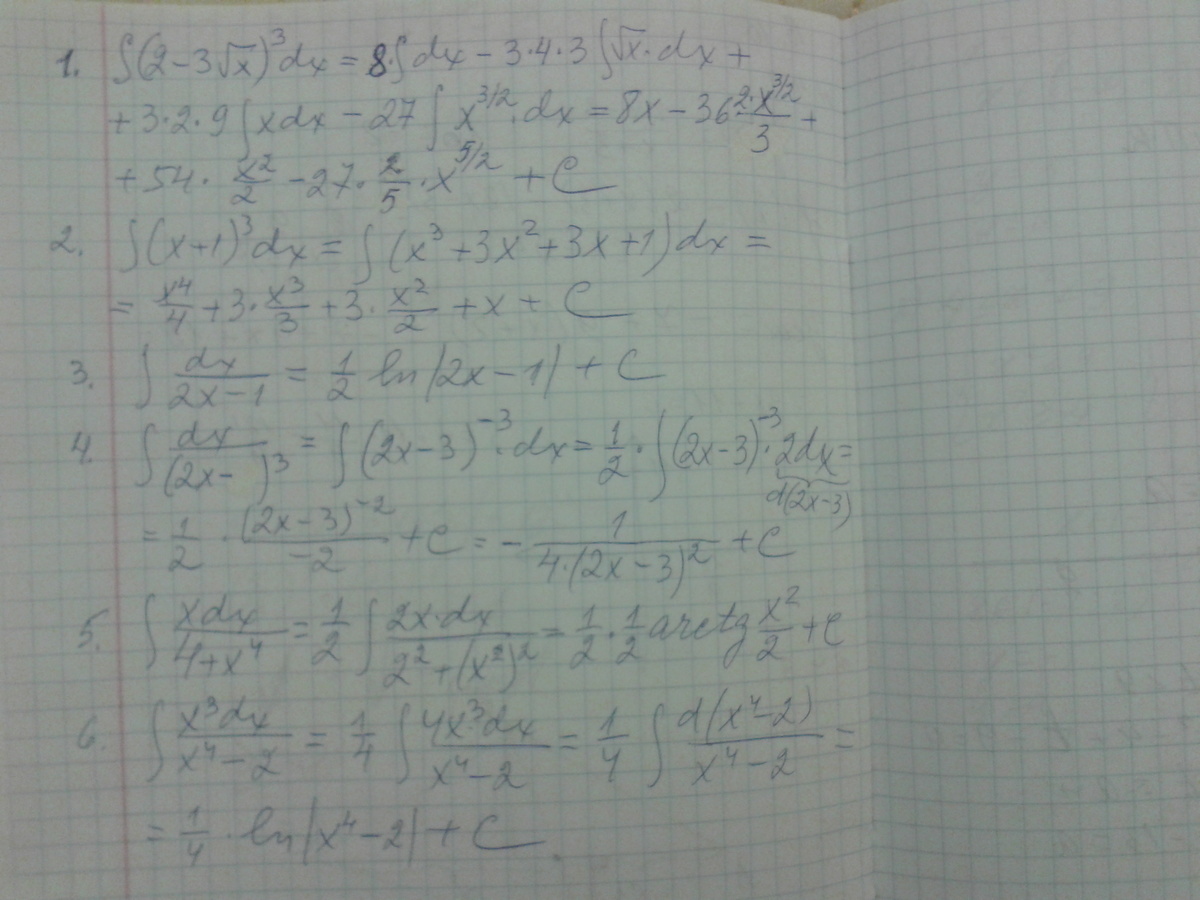 1. ∫(2-3√x)³dx = 8·∫dx - 3·4·3∫√x·dx +
+3·2·9∫xdx - 27∫x^{3/2}·dx = 8x - 36 (2·x^{3/2})/3 +
+54·x²/2 - 27·2/5·x^{5/2} + C
2. ∫(x+1)³dx = ∫(x³+3x²+3x+1)dx =
= x⁴/4 + 3·x³/3 + 3·x²/2 + x + C
3. ∫dx/(2x-1) = 1/2 ln|2x-1| + C
4. ∫dx/(2x- )³ = ∫(2x-3)⁻³·dx = 1/2·∫(2x-3)⁻³·2dx =
d(2x-3)
= 1/2·(2x-3)⁻²/-2 + C = -1/(4·(2x-3)²) + C
5. ∫xdx/(4+x⁴) = 1/2∫2x·dx/(2²+(x²)²) = 1/2·1/2 arctg x²/2 + C
6. ∫x³dx/(x⁴-2) = 1/4∫4x³dx/(x⁴-2) = 1/4∫d(x⁴-2)/(x⁴-2) =
= 1/4·ln|x⁴-2| + C